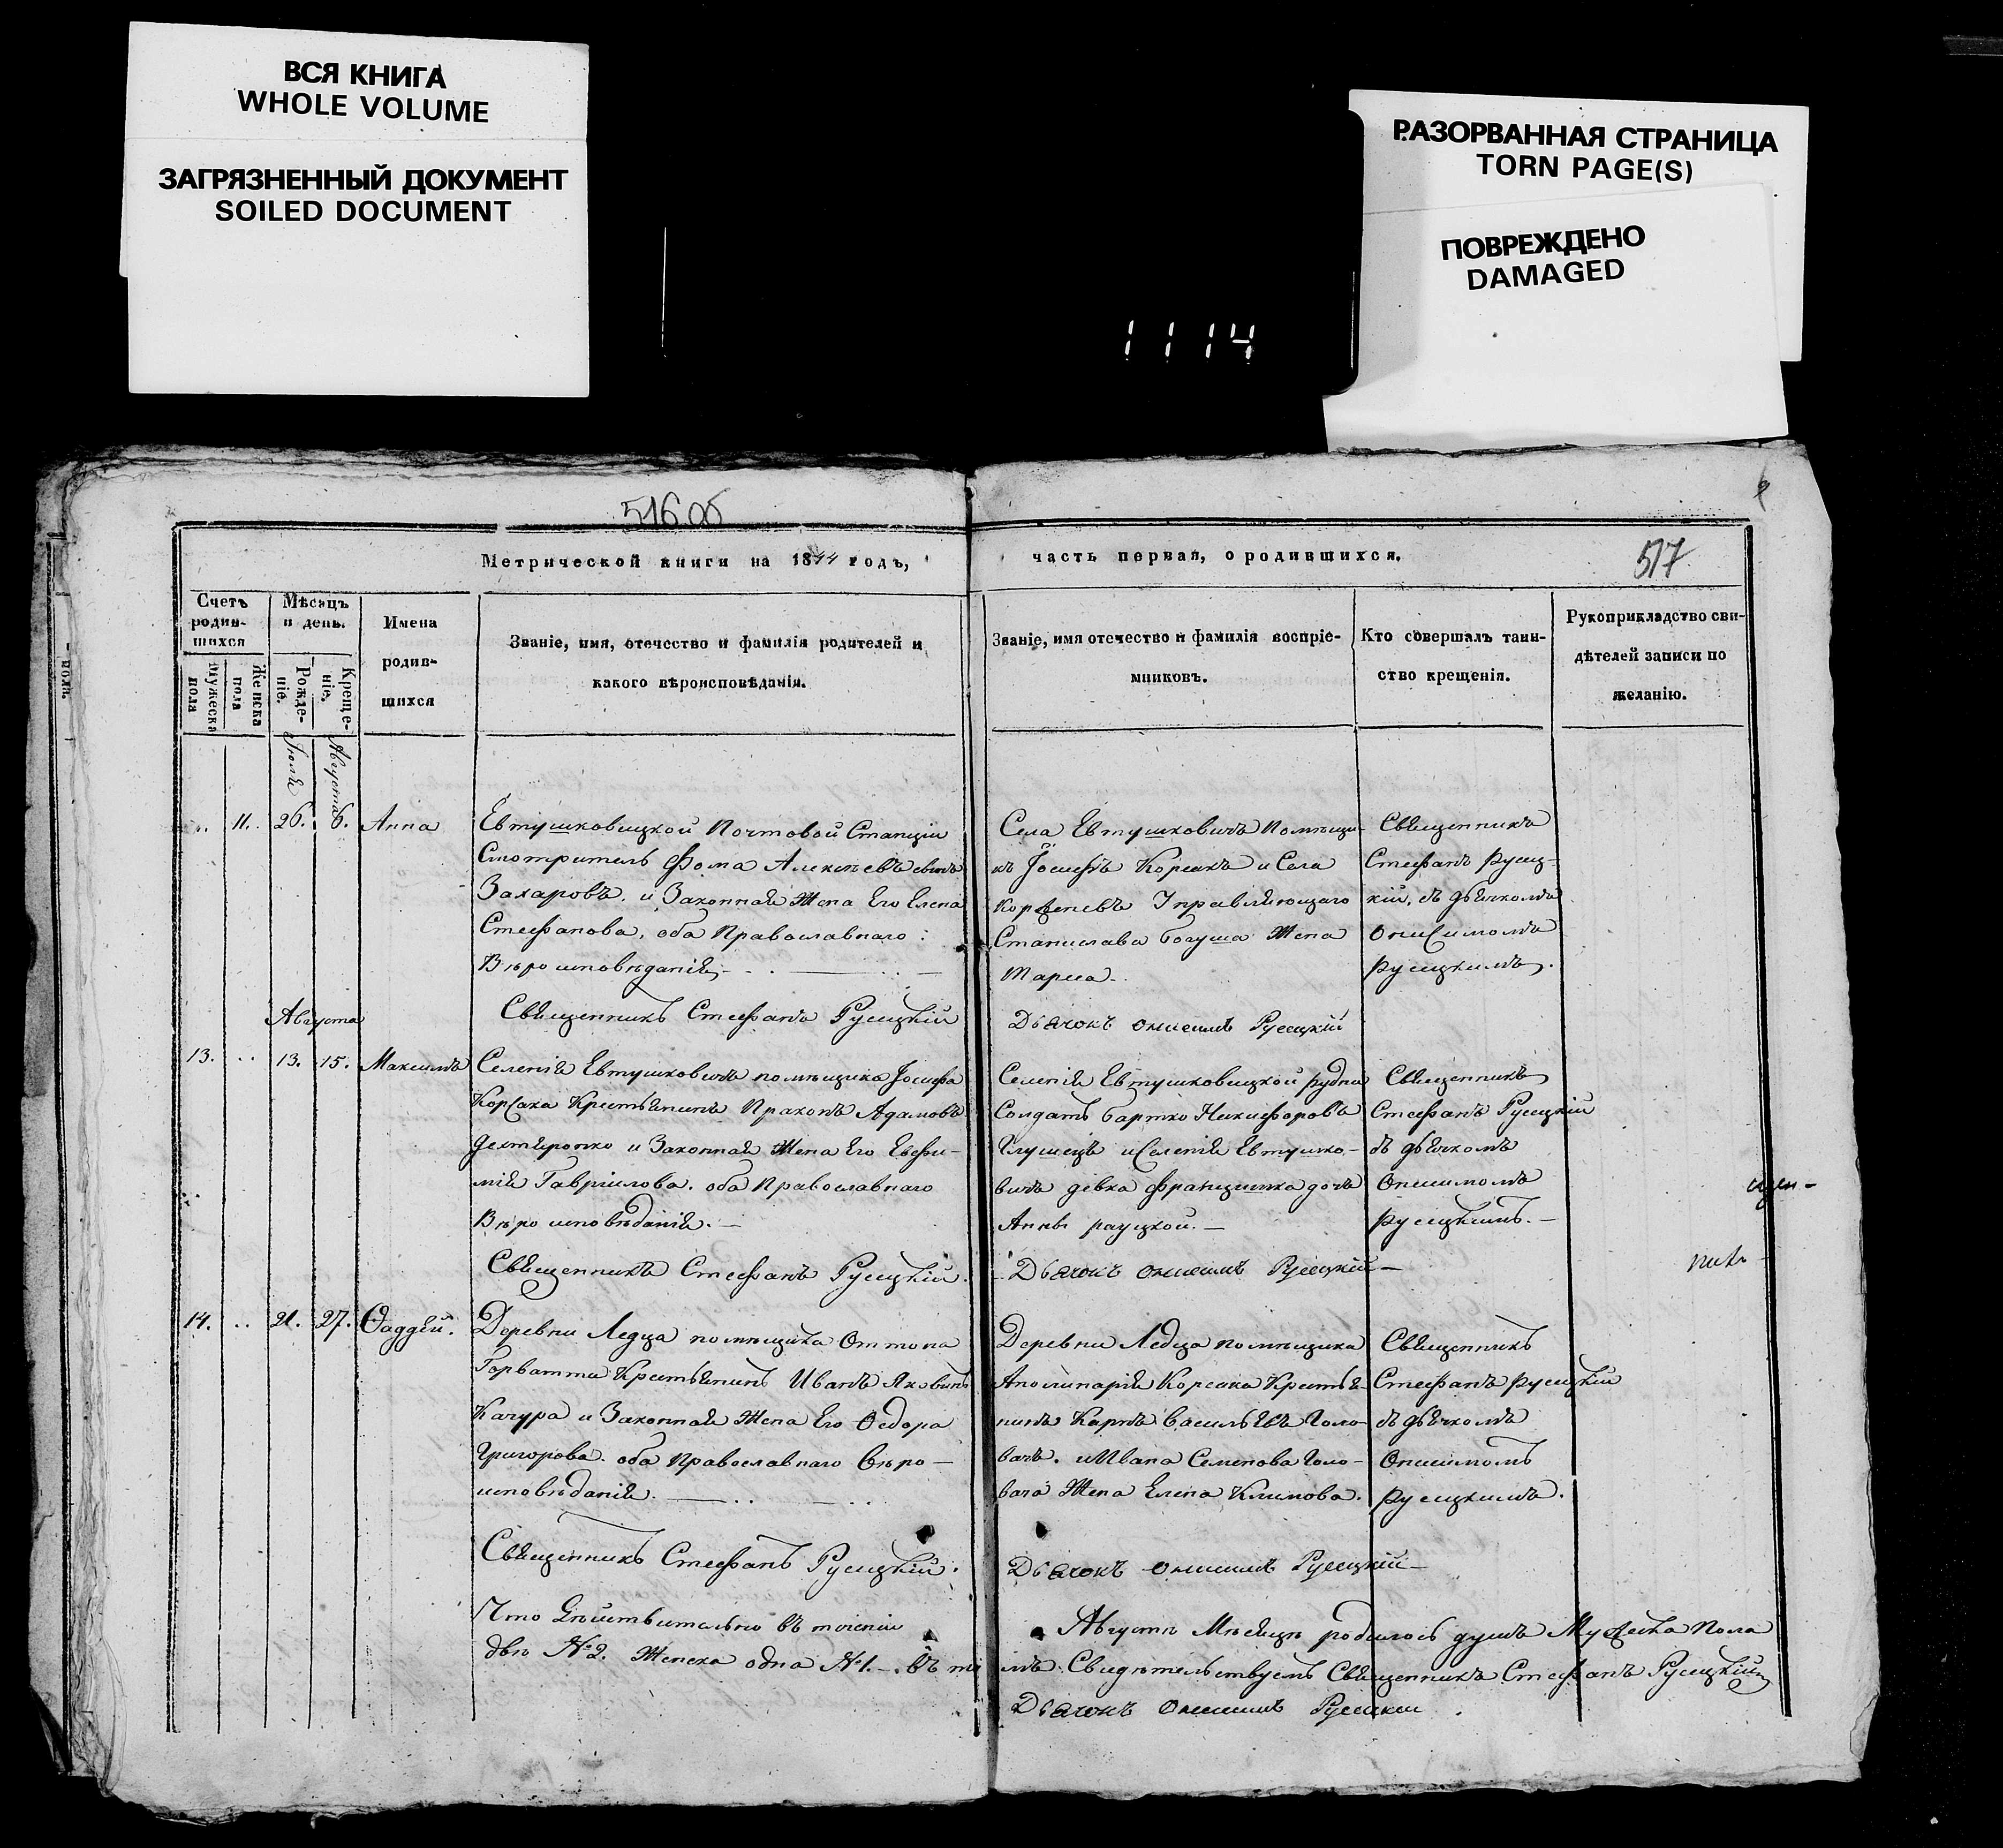 ВСЯ КНИГА
WHOLE VOLUME
ЗАГРЯЗНЕННЫЙ ДОКУМЕНТ
SOILED DOCUMENT
РАЗОРВАННАЯ СТРАНИЦА
TORN PAGE(S)
ПОВРЕЖДЕНО
DAMAGED
1114
516об
517
Метрической книги на 1844 годъ,
часть первая, о родившихся.
Счетъ родив-шихся
Мужеска пола
Женска пола
Мѣсяцъ и день.
Рожде-ніе.
Креще-ніе.
Имена родив-шихся
Званіе, имя, отечество и фамилія родителей и
какого вѣроисповѣданія.
Званіе, имя отечество и фамилія воспріе-
мниковъ.
Кто совершалъ таин-
ство крещенія.
Рукоприкладство сви-
дѣтелей записи по
желанію.
Іюля
Августа
11. 26. 6. Анна
Евтушковицкой Почтовой Станціи
Смотритель Фома Алексѣевъ сынъ
Захаровъ, и Законная Жена Его Елена
Стефанова, оба Православнаго
Вѣроисповѣданія.
Села Евтушковичъ Помѣщи-
къ Іосифъ Корсакъ и Села
Управляющаго
Станислава Богуша Жена
Священникъ
Стефанъ Русец-
кій, съ дьячкомъ
Онисимомъ
Русецкимъ.
Священникъ Стефанъ Русецкій
Дьячокъ Онисимъ Русецкій
Августа
13. 13. 15. Максимъ
Селенія Евтушковичъ помѣщика Іосифа
Корсака Крестьянинъ Прахопъ Адамовъ
и Законная Жена Его Евфи-
мія Гаврилова. оба Православнаго
Вѣроисповѣданія.
Селенія Евтушковицкой Рудни
Солдатъ Бартко Никифоровъ
Глушецъ и Селенія Евтушко-
вичъ дѣвка Францишка дочь
Анны рауцкой.
Священникъ
Стефанъ Русецкій
съ дьячкомъ
Онисимомъ
Русецкимъ.
Священникъ Стефанъ Русецкій.
Дьячокъ Онисимъ Русецкій
14. 21. 27. Фаддѣй.
Деревни Ледца помѣщика Оттона
Горватта Крестьянинъ Иванъ Яковлевъ
Качура и Законная Жена Его Федора
Григорова. оба Православнаго Вѣро-
исповѣданія.
Деревни Ледца помѣщика
Аполинарія Корсака Крестья-
нинъ Карпъ Васильевъ Голо-
вачъ. и Ивана Семенова Голо-
вача Жена Елена Климова.
Священникъ
Стефанъ Русецкій
съ дьячкомъ
Онисимомъ
Русецкимъ.
Священникъ Стефанъ Русецкій.
Дьячокъ Онисимъ Русецкій
Что дѣйствительно въ теченіи
Августѣ Мѣсяцѣ родилось душъ Мужеска пола
двѣ №2. Женска одна №1.
Свидѣтельствуемъ Священникъ Стефанъ Русецкій
Дьячокъ Онисимъ Русецкій